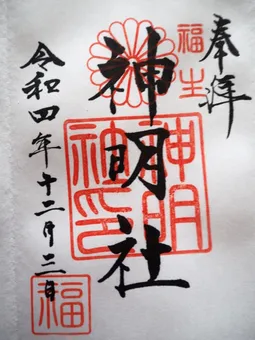 奉拝
福生
神明社
神明
社印
令和四年十二月三日
福